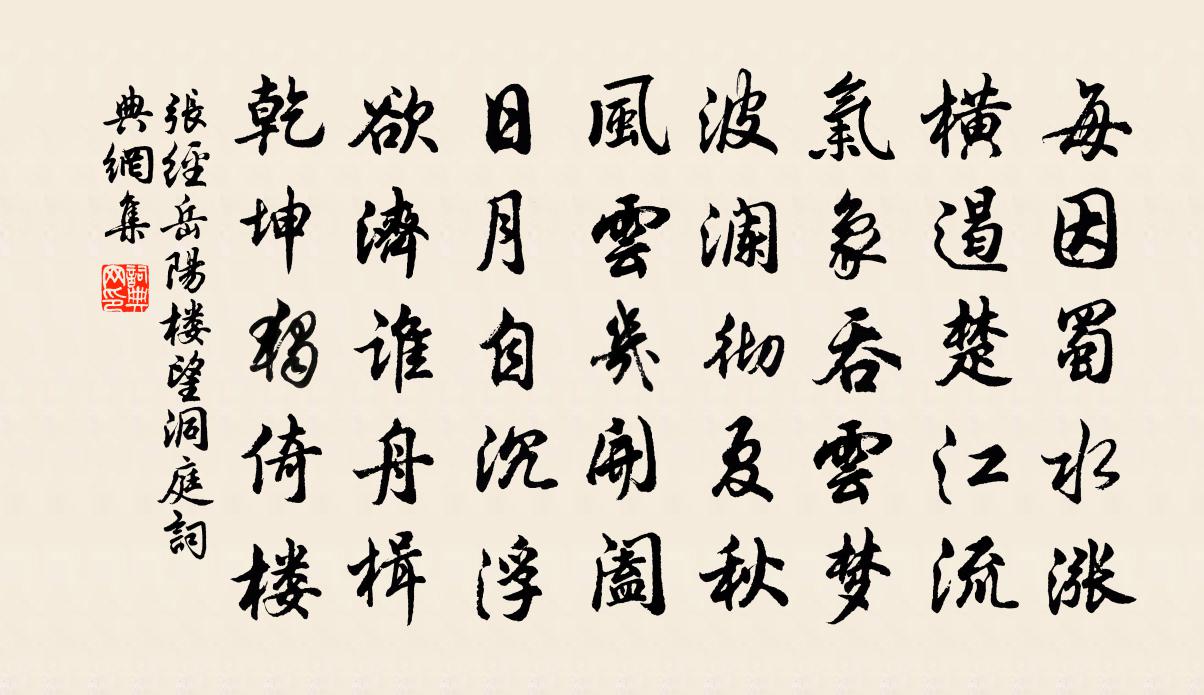 每因蜀水漲
橫遏楚江流
氣象吞雲梦
波澜彻夏秋
風雲幾開闔
日月自沉浮
欲濟誰舟楫
乾坤獨倚楼
張經岳陽楼望洞庭詞
典網集
詞典网印